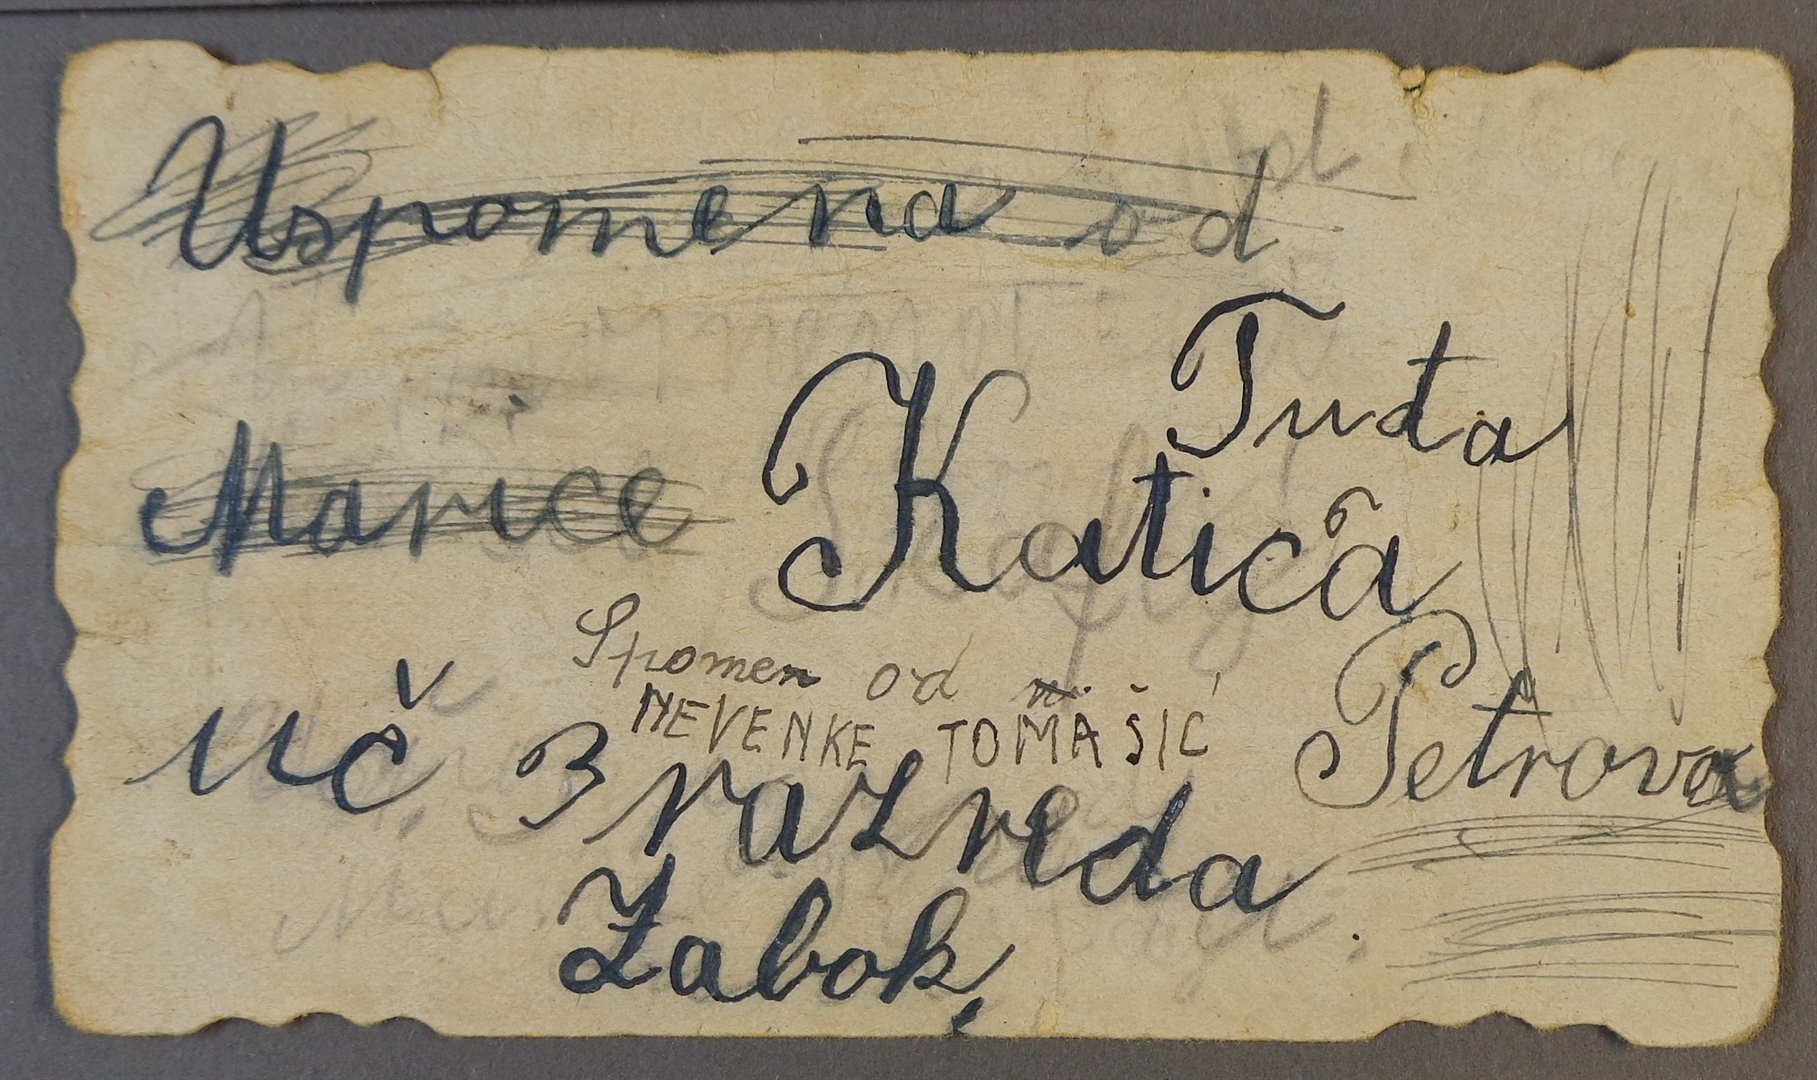 Uspomena od
Tuđa
Marice Katica
Spomen od
NEVENKE TOMAŠIĆ
Petrova
uč 3 razreda
Zabok,